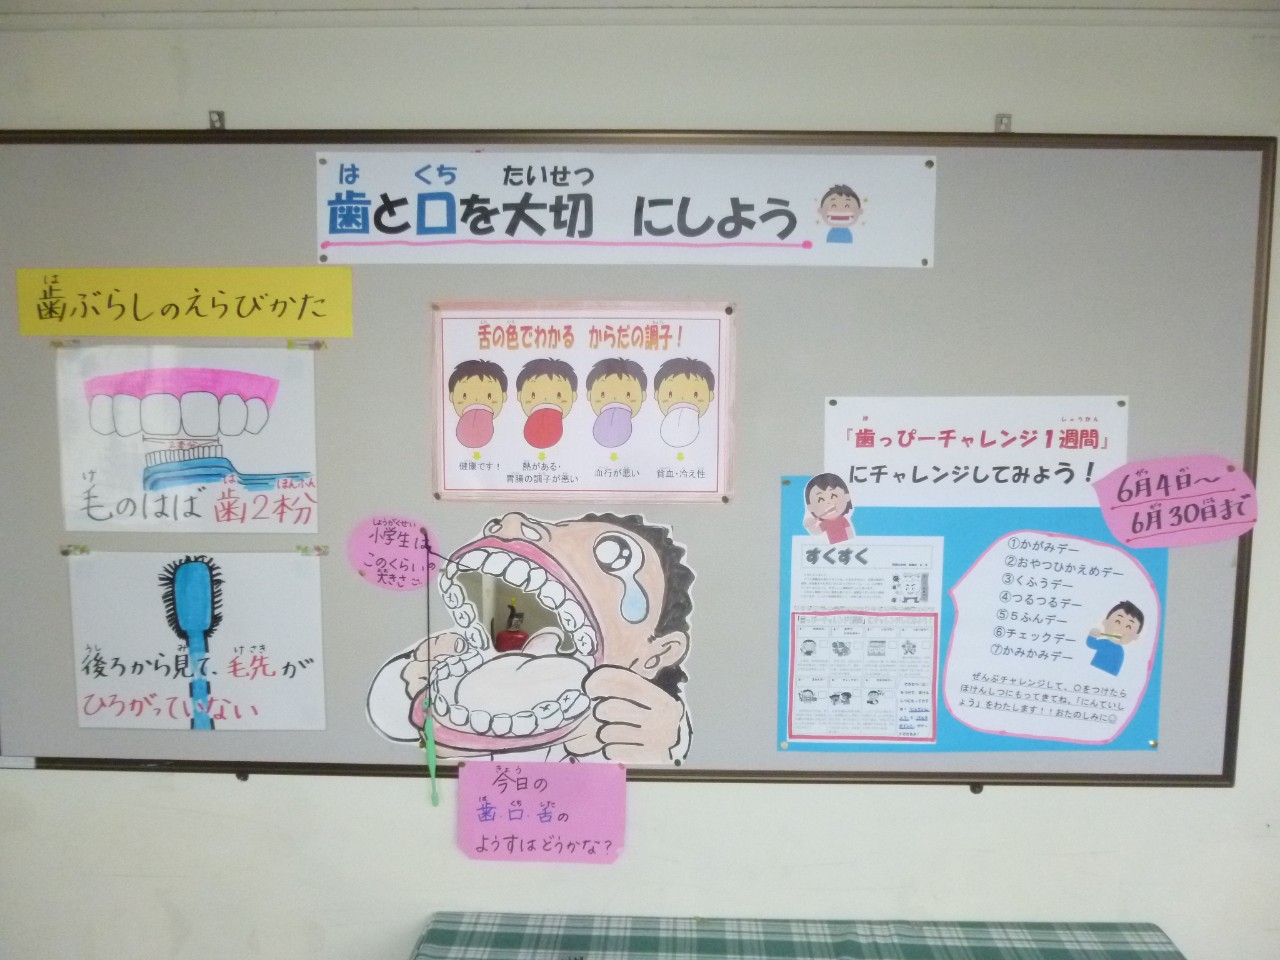 歯と口を大切 にしよう
は くち たいせつ
歯ぶらしのえらびかた
は
毛のはば 歯2本分
け は ほんぶん
後ろから見て、毛先が
うし み け さき
ひろがっていない
舌の色でわかる からだの調子！
健康です！
熱がある・
胃腸の調子が悪い
血行が悪い
貧血・冷え性
小学生は
しょうがくせい
このくらいの
大きさ
今日の
きょう
歯・口・舌の
は くち した
ようすはどうかな？
「歯っぴーチャレンジ1週間」
は しゅうかん
にチャレンジしてみよう！
6月4日〜
6月30日まで
すくすく
①かがみデー
②おやつひかえめデー
③くふうデー
④つるつるデー
⑤5ふんデー
⑥チェックデー
⑦かみかみデー
ぜんぶチャレンジして、○をつけたら
ほけんしつにもってきてね。「にんていし
ょう」をわたします！！おたのしみに☺